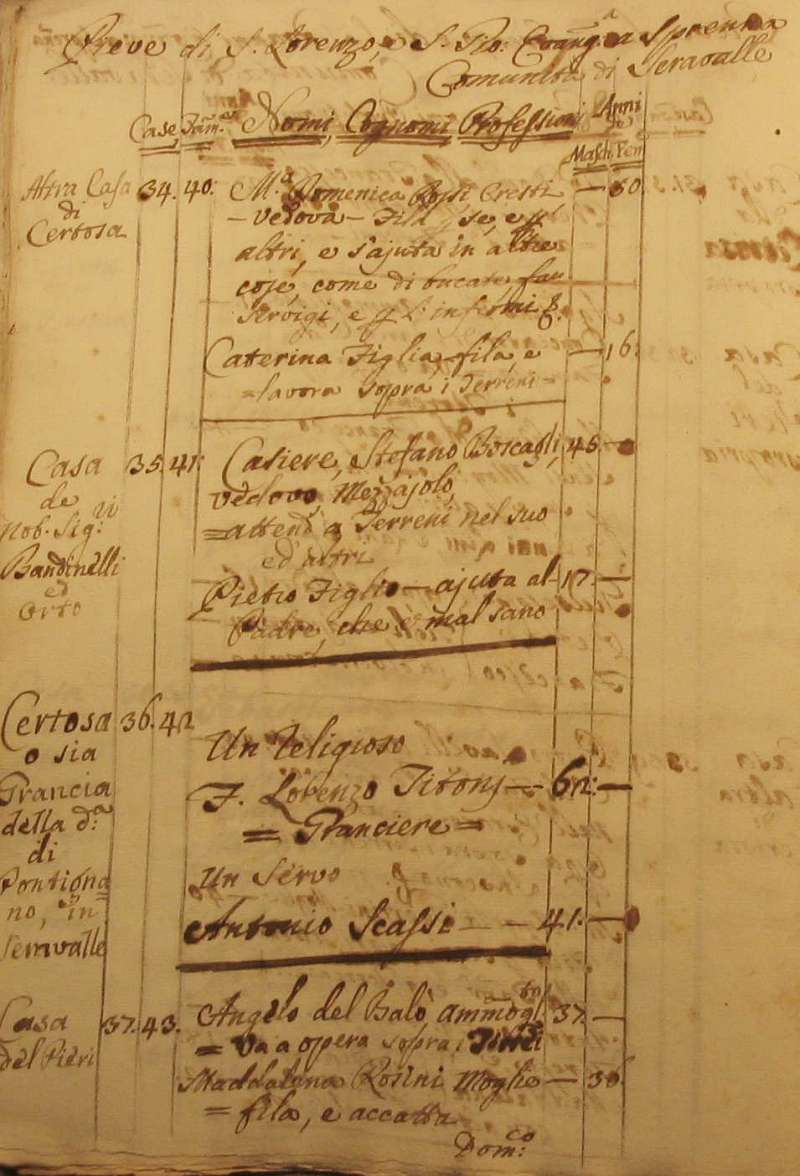 Pieve di S. Lorenzo, e S. Gio: Evang.ta a Sprenna
Comunità di Seravalle
Case, Fam.e Nomi, Cognomi, Professioni Anni
Masch. Fem.
Altra Casa 34. 40. M.a Domenica Rossi Cresti — 50
di — Vedova — Fila p se, e p
Certosa altri, e s'ajuta in altre
cose, come di bucate, far
servigi, e p l'infermi &.
Caterina Figlia, fila, e — 16.
= lavora sopra i Terreni =
Casa 35. 41. Casiere, Stefano Boscagli, 45. —
de vedovo, Mezzajolo,
Nob. Sig.ri = attend. a Terreni nel suo
Bandinelli ed altri
ed Pietro Figlio — ajuta al 17. —
Orto Padre, che è mal sano
Certosa 36. 42
o sia Un Religioso
Grancia F. Lorenzo — 62. —
della d.a = Granciere =
di
Pontigna= Un Servo
no, in Antonio Scassi — — 41. —
Serravalle
Casa 37. 43. Angelo del Balò ammogl.to 37. —
del Pieri = Va a opera sopra i Terreni
Maddalena Rosini Moglie — 36
= fila, e accatta
Dom.co